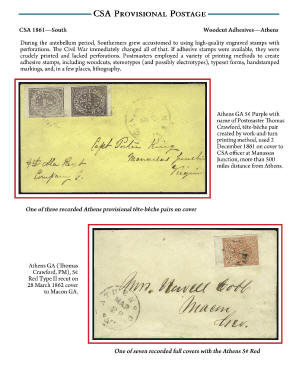 CSA Provisional Postage
CSA 1861—South
Woodcut Adhesives—Athens
During the antebellum period, Southerners grew accustomed to using high-quality engraved stamps with
perforations. The Civil War immediately changed all of that. If adhesive stamps were available, they were
crudely printed and lacked perforations. Postmasters employed a variety of printing methods to create
adhesive stamps, including woodcuts, stereotypes (and possibly electrotypes), typeset forms, handstamped
markings, and, in a few places, lithography.
Athens GA 5¢ Purple with
name of Postmaster Thomas
Crawford, tête-bêche pair
created by work-and-turn
printing method, used 2
December 1861 on cover to
CSA officer at Manassas
Junction, more than 500
miles distance from Athens.
Capt Porter King
Manassas Junction
Virginia
4th Ala Regt
Company
One of three recorded Athens provisional tête-bêche pairs on cover
Athens GA (Thomas
Crawford, PM), 5¢
Red Type II recut on
28 March 1862 cover
to Macon GA.
Mrs. Howell Cobb
Macon
Geo.
One of seven recorded full covers with the Athens 5¢ Red